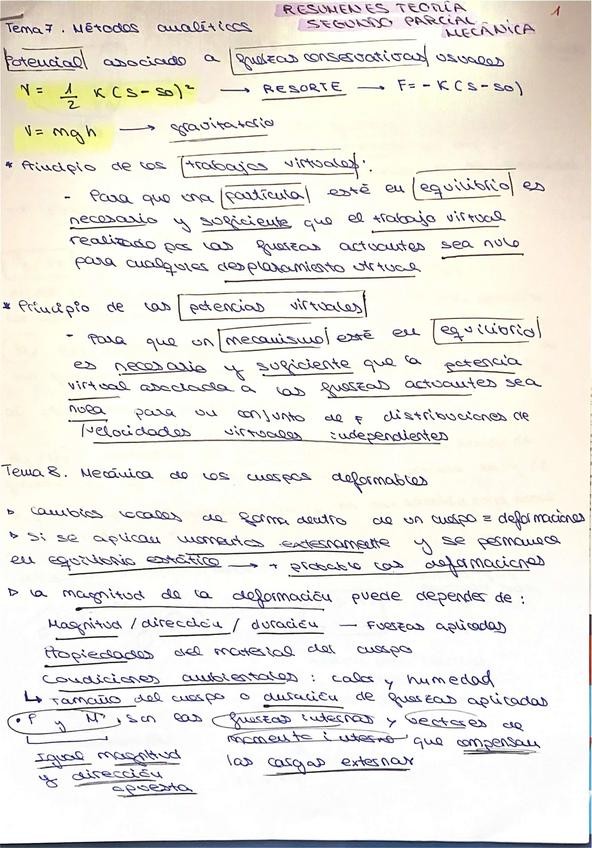 RESUMENES TEORÍA 1
SEGUNDO PARCIAL
MECÁNICA
Tema 7. Métodos analíticos
Potencial asociado a fuerzas conservativas usuales
V = 1/2 K (s - so)² → RESORTE → F = - K (s - so)
V = mgh → gravitatorio
* Principio de los trabajos virtuales:
- Para que una partícula esté en equilibrio es
necesario y suficiente que el trabajo virtual
realizado por las fuerzas actuantes sea nulo
para cualquier desplazamiento virtual
* Principio de las potencias virtuales
- Para que un mecanismo esté en equilibrio
es necesario y suficiente que la potencia
virtual asociada a las fuerzas actuantes sea
nula para un conjunto de F distribuciones de
velocidades virtuales independientes
Tema 8. Mecánica de los cuerpos deformables
▹ cambios locales de forma dentro de un cuerpo = deformaciones
▹ Si se aplican momentos externamente y se permanece
en equilibrio estático → + probable las deformaciones
▹ La magnitud de la deformación puede depender de:
Magnitud / dirección / duración — Fuerzas aplicadas
Propiedades del material del cuerpo
Condiciones ambientales: calor y humedad
↳ Tamaño del cuerpo o duración de fuerzas aplicadas
• P y M, son las fuerzas internas y vectores de
momento interno que compensan
Igual magnitud las cargas externas
y dirección
opuesta